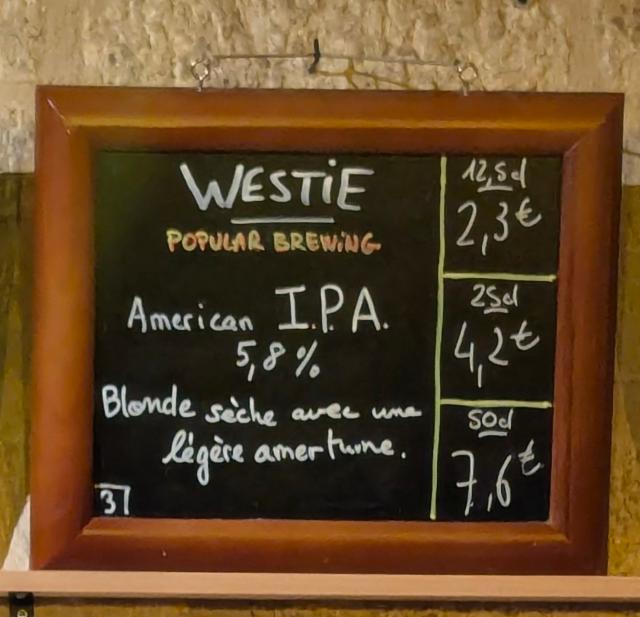 WESTiE
POPULAR BREWiNG
American I.P.A.
5,8 %
Blonde sèche avec une
légère amertume.
3
12,5cl
2,3€
25cl
4,2€
50cl
7,6€